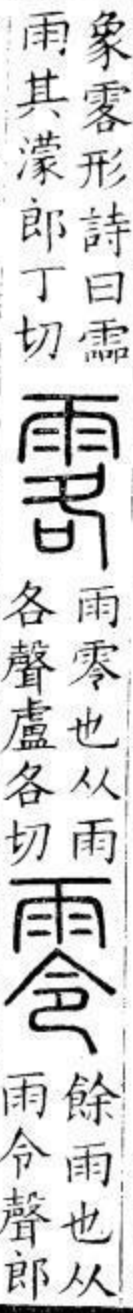 象霝形詩曰霝
雨其濛郎丁切
零
雨零也从雨
各聲盧各切
零
餘雨也从
雨令聲郎